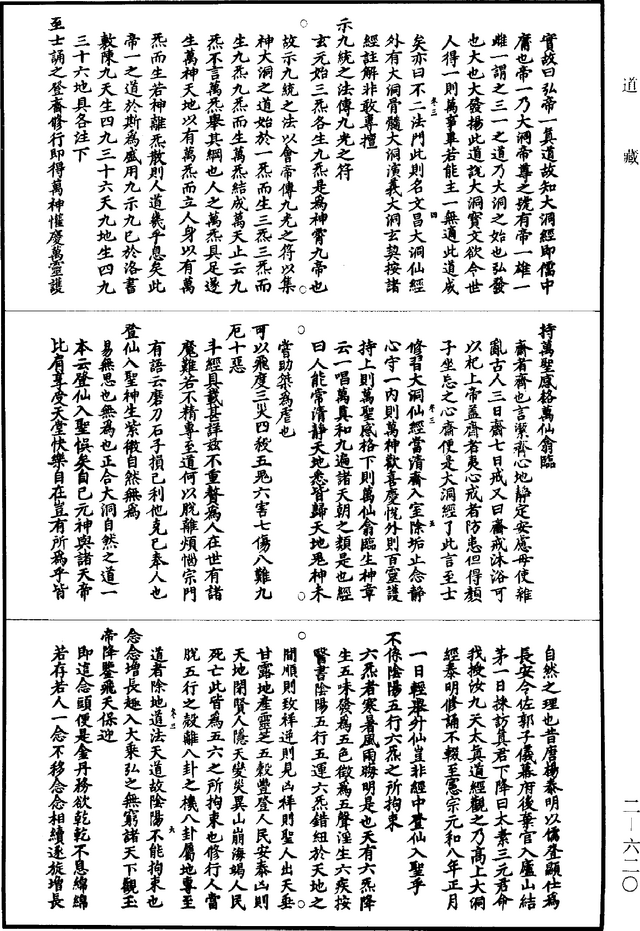 實故曰弘帝一真道故知大洞經即儒中
庸也帝一乃大洞帝尊之號有帝一雄一
雌一謂之三一之道乃大洞之始也弘發
也大也大發揚此道說大洞寶文欲令世
人得一則萬事畢若能主一無適此道成
矣亦曰不二法門此則名文昌大洞仙經
外有大洞骨髓大洞演義大洞玄契按諸
經註解非敢專擅
示九統之法傳九光之符
玄元始三炁各生九炁是為神霄九帝也
故示九統之法以會帝傳九光之符以集
神大洞之道始於一炁而生三炁三炁而
生九炁九炁而生萬炁結成萬天止云九
炁不言萬炁舉其綱也人之萬炁具足邊
生萬神天地以有萬炁而立人身以有萬
炁而生若神離炁散則人道幾乎息矣此
帝一之道於斯為盛用九示九已於洛書
敷陳九天生四九三十六天九地生四九
三十六地具各註下
至士誦之登齋修行即得萬神懽慶萬靈護
持萬聖感格萬仙翕臨
齋者齊也言潔齊心地靜定安慮毋使雜
亂古人三日齋七日戒又曰齋戒沐浴可
以祀上帝蓋齋者夷心戒者防患但得顏
子坐忘之心齋便是大洞經了此言至士
修習大洞仙經當清齋入室除垢止念靜
心守一內則萬神歡喜慶悅外則百靈護
持上則萬聖感格下則萬仙翕臨生神章
云一唱萬真和九遍諸天朝之類是也經
曰人能常清靜天地悉皆歸天地鬼神未
嘗助桀為虐也
可以飛度三災四殺五鬼六害七傷八難九
厄十惡
斗經具載甚詳茲不重贅為人在世有諸
魔難若不精專至道何以脫離煩惱宗門
有語云磨刀石子損己利他克己奉人也
登仙入聖神生紫微自然無為
易無思也無為也正合大洞自然之道一
本云登仙入聖悞矣自己元神與諸天帝
比肩享度天堂快樂自在豈有所為乎皆
自然之理也昔唐楊泰明以儒登顯仕為
長安令佐郭子儀幕府後葉官入廬山結
茅一日採訪真君下降曰太素三元君命
我授汝九天太真道經觀之乃高上大洞
經泰明修誦不輟至憲宗元和八年正月
一日輕舉外仙豈非經中登仙入聖乎
不係陰陽五行六炁之所拘束
六炁者寒暑風雨晦明是也天有六炁降
生五味發為五色徵為五聲淫生六疾按
醫書陰陽五行五運六炁錯紐於天地之
間順則致祥逆則見凶祥則聖人出天垂
甘露地產靈芝五穀豐登人民安泰凶則
天地閉賢人隱天變災異山崩海竭人民
死亡此皆為五六之所拘束也修行人當
脫五行之殼離八卦之機八卦屬地專至
道者除地道法天道故陰陽不能拘束也
念念增長趣入大乘弘之無窮諸天下觀玉
帝降鑒飛天保迎
即這念頭便是金丹務欲乾乾不息綿綿
若存若人一念不移念念相續逐旋增長
道藏
二—六二〇
卷三 四
卷三 五
卷三 六